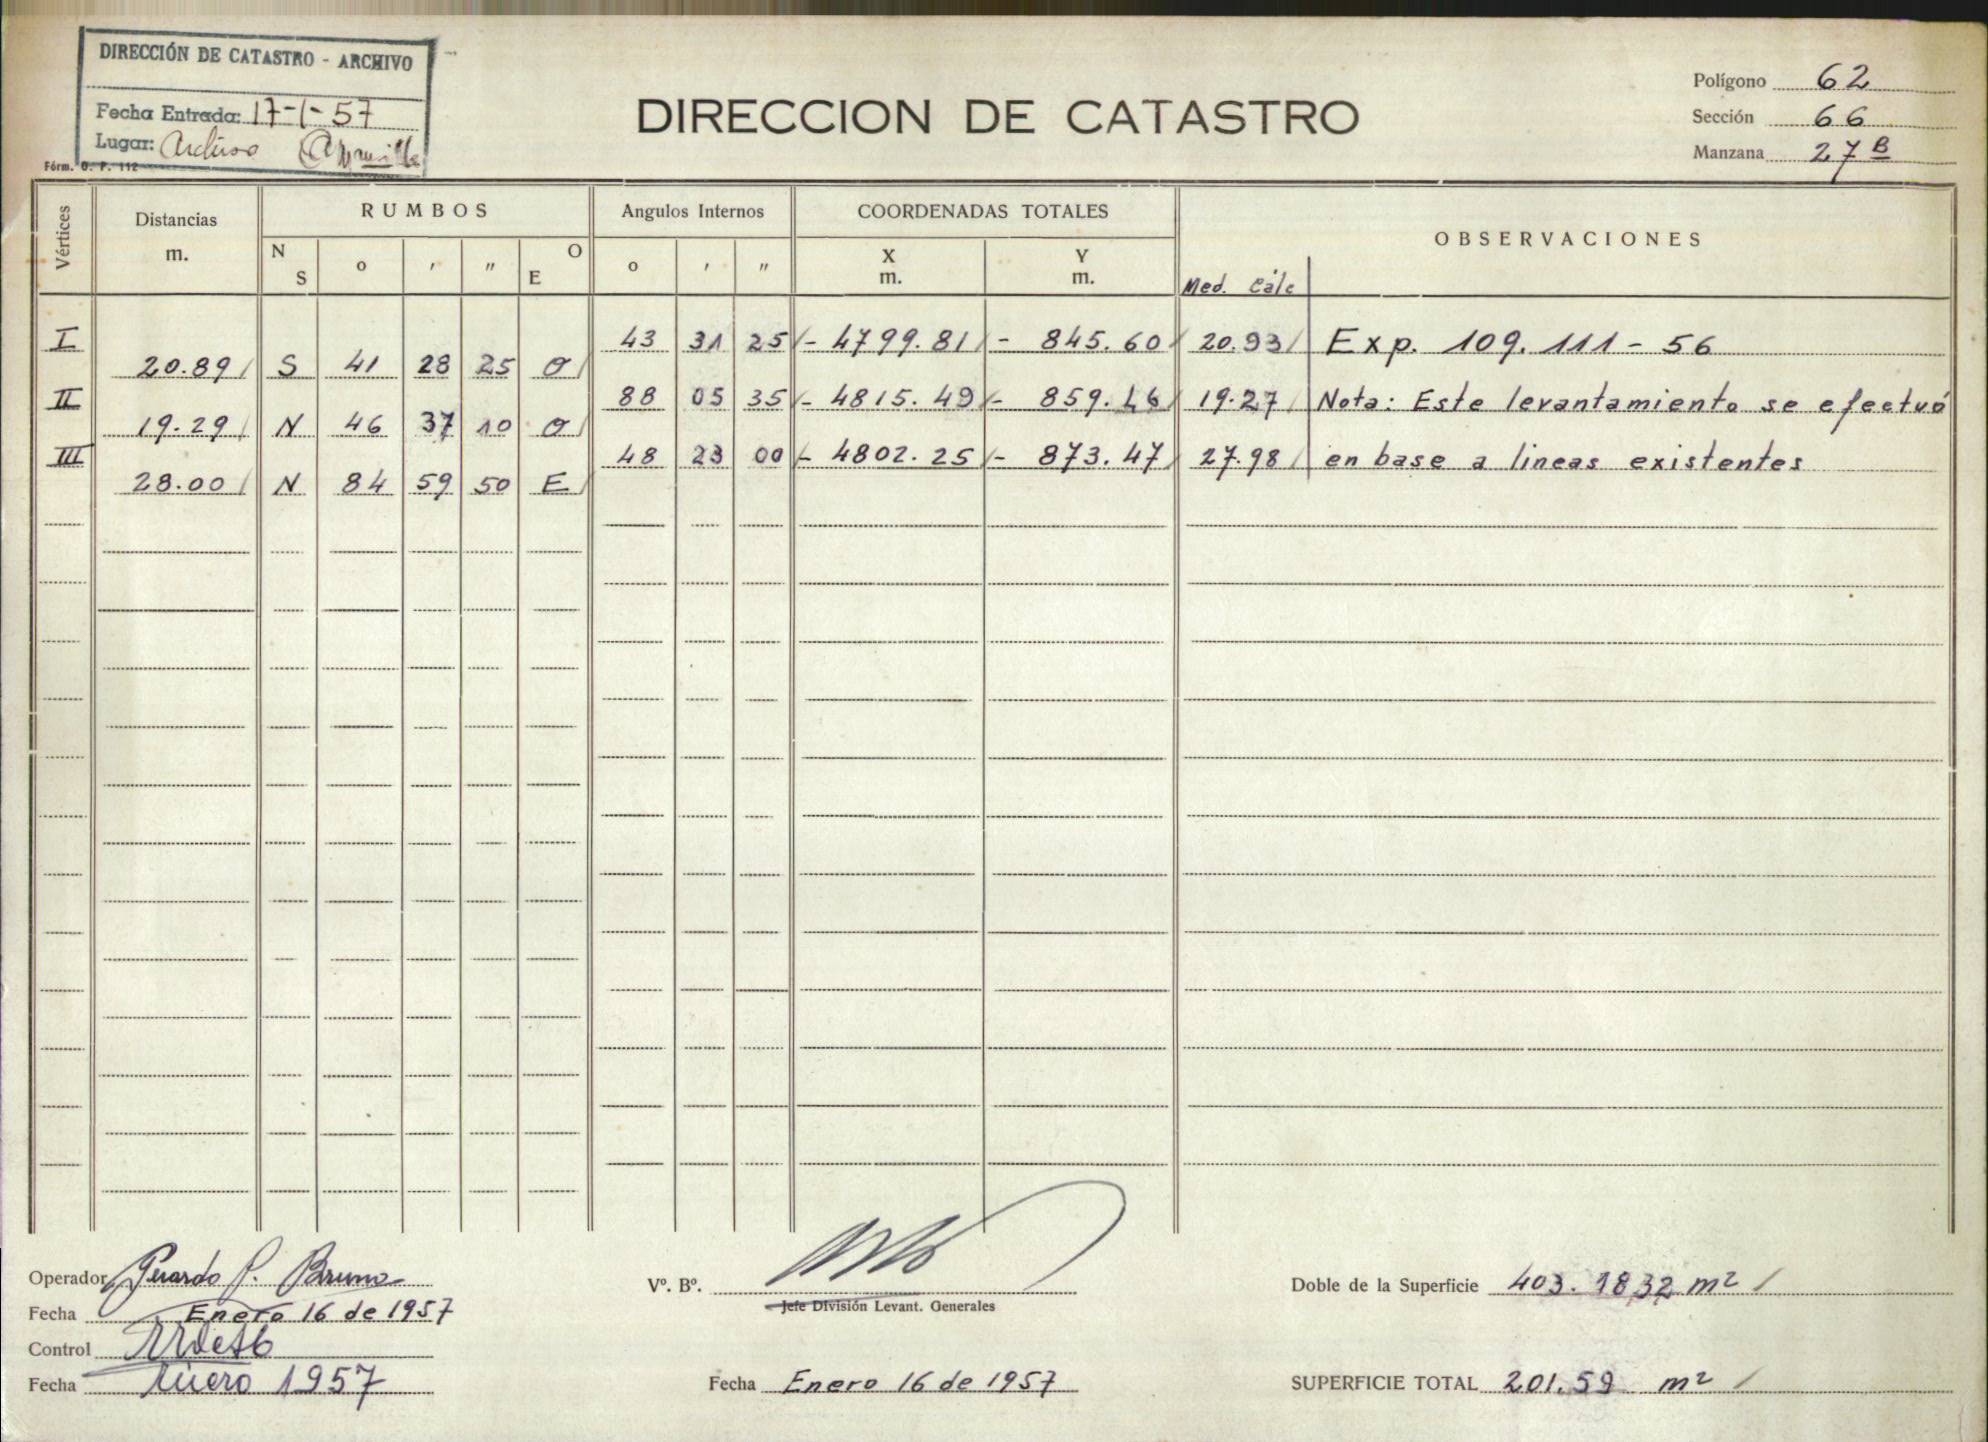 DIRECCIÓN DE CATASTRO - ARCHIVO
Fecha Entrada: 17-1-57
Lugar: Archivo
Fórm. O. P. 112
DIRECCION DE CATASTRO
Polígono 62
Sección 66
Manzana 27 B
Vértices
Distancias m.
RUMBOS
N S o ′ ″ O E
Angulos Internos
o ′ ″
COORDENADAS TOTALES
X m. Y m.
OBSERVACIONES
Med. Cálc
I 43 31 25 - 4799.81 - 845.60 20.93 Exp. 109.111-56
20.89 S 41 28 25 O
II 88 05 35 - 4815.49 - 859.46 19.27 Nota: Este levantamiento se efectuó
19.29 N 46 37 10 O
III 48 23 00 - 4802.25 - 873.47 27.98 en base a lineas existentes
28.00 N 84 59 50 E
Operador Gerardo P. Bruno
Fecha Enero 16 de 1957
Control
Fecha Enero 1957
Vº. Bº.
Jefe División Levant. Generales
Fecha Enero 16 de 1957
Doble de la Superficie 403.1832 m2
SUPERFICIE TOTAL 201.59 m2